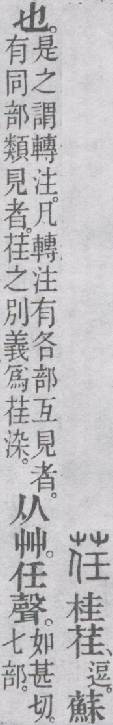 荏桂荏、逗。蘇
也。是之謂轉注。凡轉注有各部互見者。
有同部類見者。荏之別義爲荏染。
从艸。任聲。如甚切。
七部。